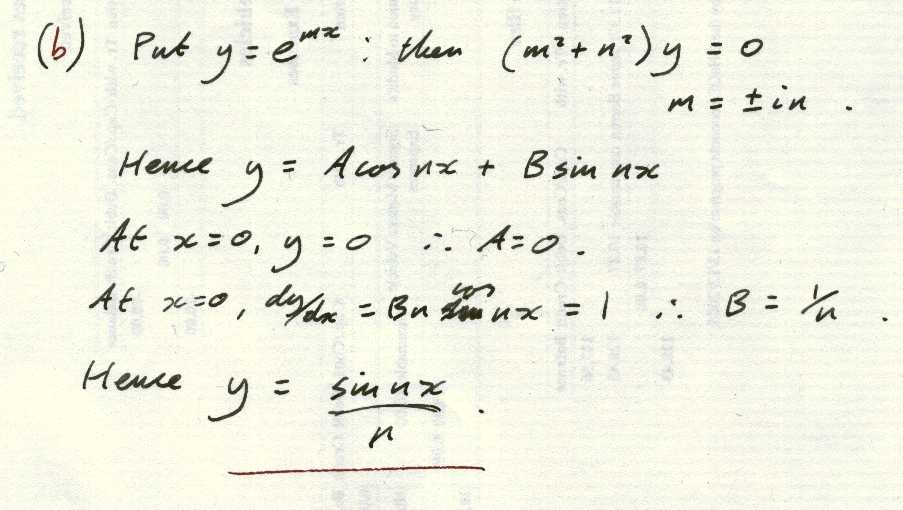 (b) Put y = e^{mx} : then (m² + n²) y = 0
m = ± in .
Hence y = A cos nx + B sin nx
At x = 0, y = 0 ∴ A = 0 .
At x = 0, dy/dx = Bn cos nx = 1 ∴ B = 1/n .
Hence y = sin nx / n .